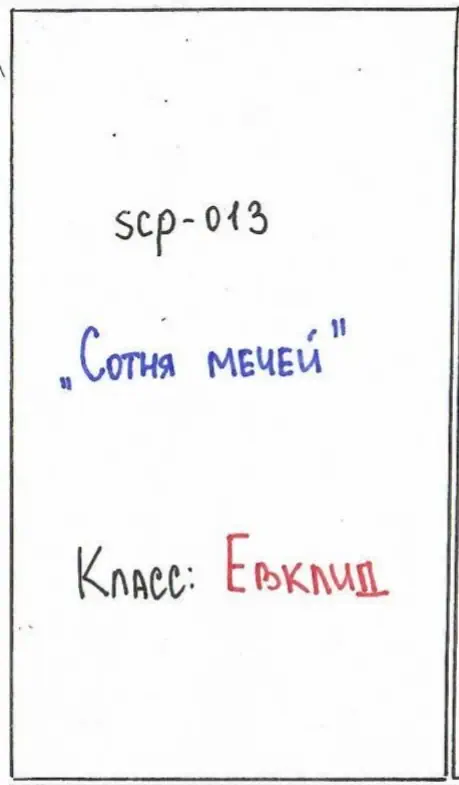 scp-013
„Сотня мечей"
Класс: Евклид